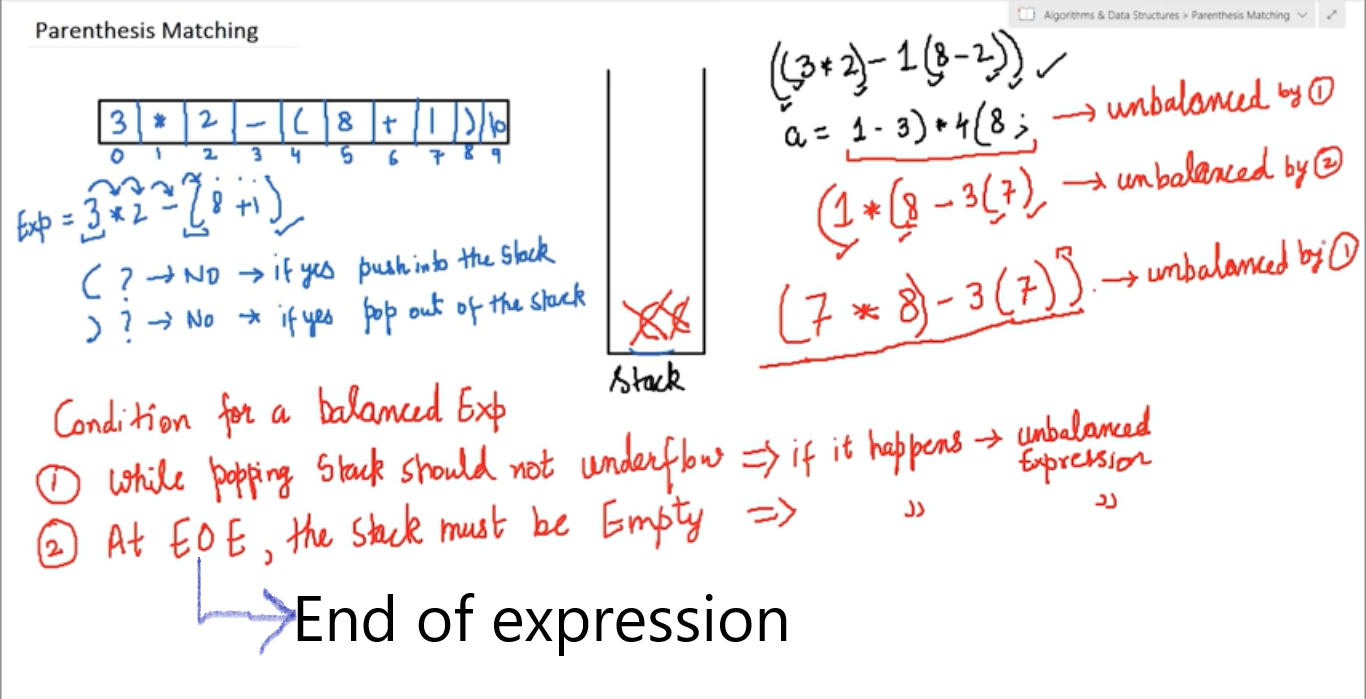 Parenthesis Matching
Algorithms & Data Structures > Parenthesis Matching
3 * 2 - ( 8 + 1 ) \0
0 1 2 3 4 5 6 7 8 9
Exp = 3 * 2 - (8 + 1)
( ? → NO → if yes push into the Stack
) ? → No → if yes pop out of the stack
Stack
((3*2)-1(8-2)) ✓
a = 1-3)*4(8; → unbalanced by ①
(1*(8-3(7) → unbalanced by ②
(7*8)-3(7)) → unbalanced by ①
Condition for a balanced Exp
① While popping Stack should not underflow ⇒ if it happens → unbalanced
Expression
② At EOE, the Stack must be Empty ⇒ " "
End of expression